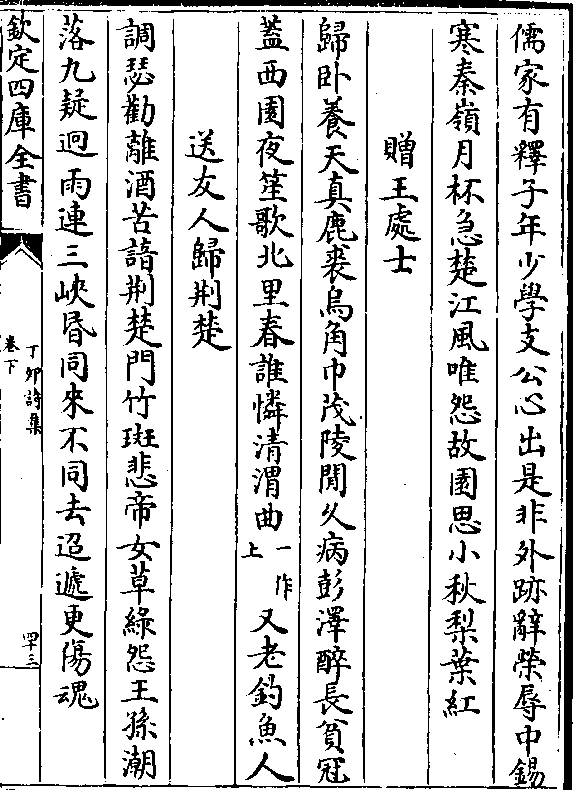 儒家有釋子年少學支公心出是非外跡辭榮辱中錫
寒秦嶺月杯急楚江風唯怨故園思小秋梨葉紅
贈王處士
歸卧養天真鹿裘烏角巾茂陵閒久病彭澤醉長貧冠
蓋西園夜笙歌北里春誰憐清渭曲一作上又老釣魚人
送友人歸荆楚
調瑟勸離酒苦諳荆楚門竹斑悲帝女草綠怨王孫潮
落九疑迥雨連三峽昏同來不同去迢遞更傷魂
欽定四庫全書
丁卯詩集
卷下
四三